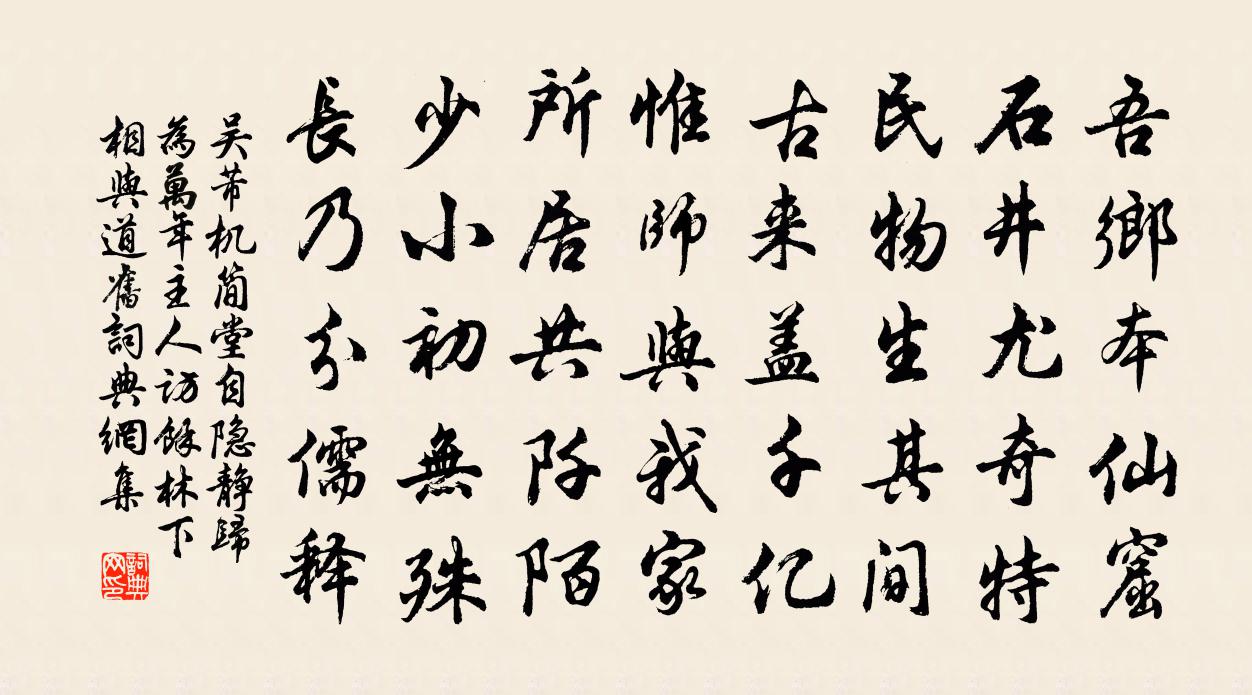 吾鄉本仙窟
石井尤奇特
民物生其間
古来盖千亿
惟師與我家
所居共阡陌
少小初無殊
長乃分儒释
吴芾机简堂自隐静歸
為萬年主人访馀林下
相與道舊詞典網集
詞典网印